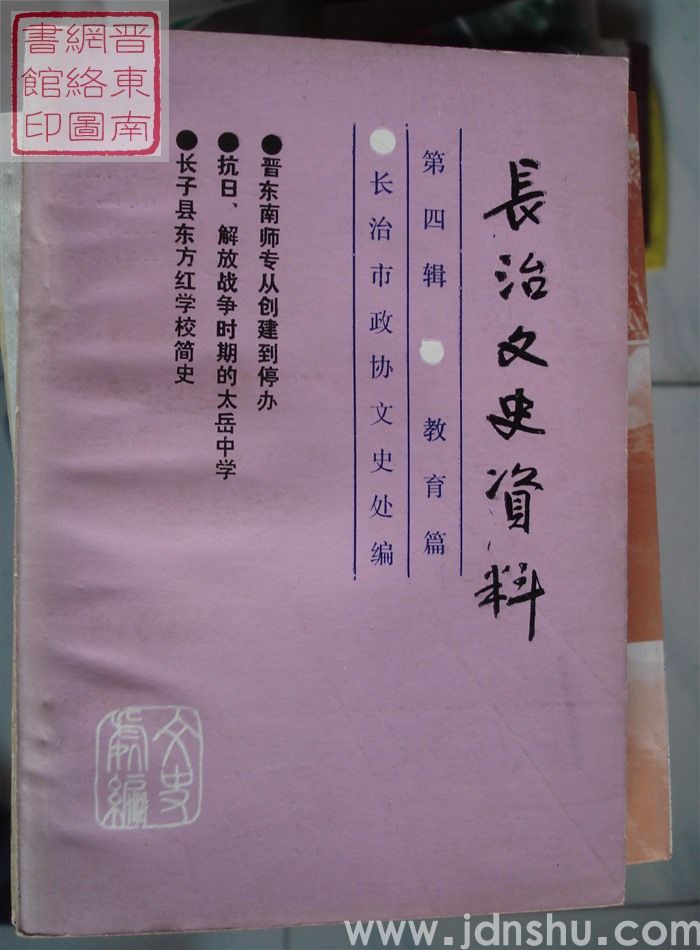 長治文史資料
第四辑●教育篇
●长治市政协文史处编
●晋东南师专从创建到停办
●抗日、解放战争时期的太岳中学
●长子县东方红学校简史
文史
處編
晋東南
網絡圖
書館印
www.jdnshu.com